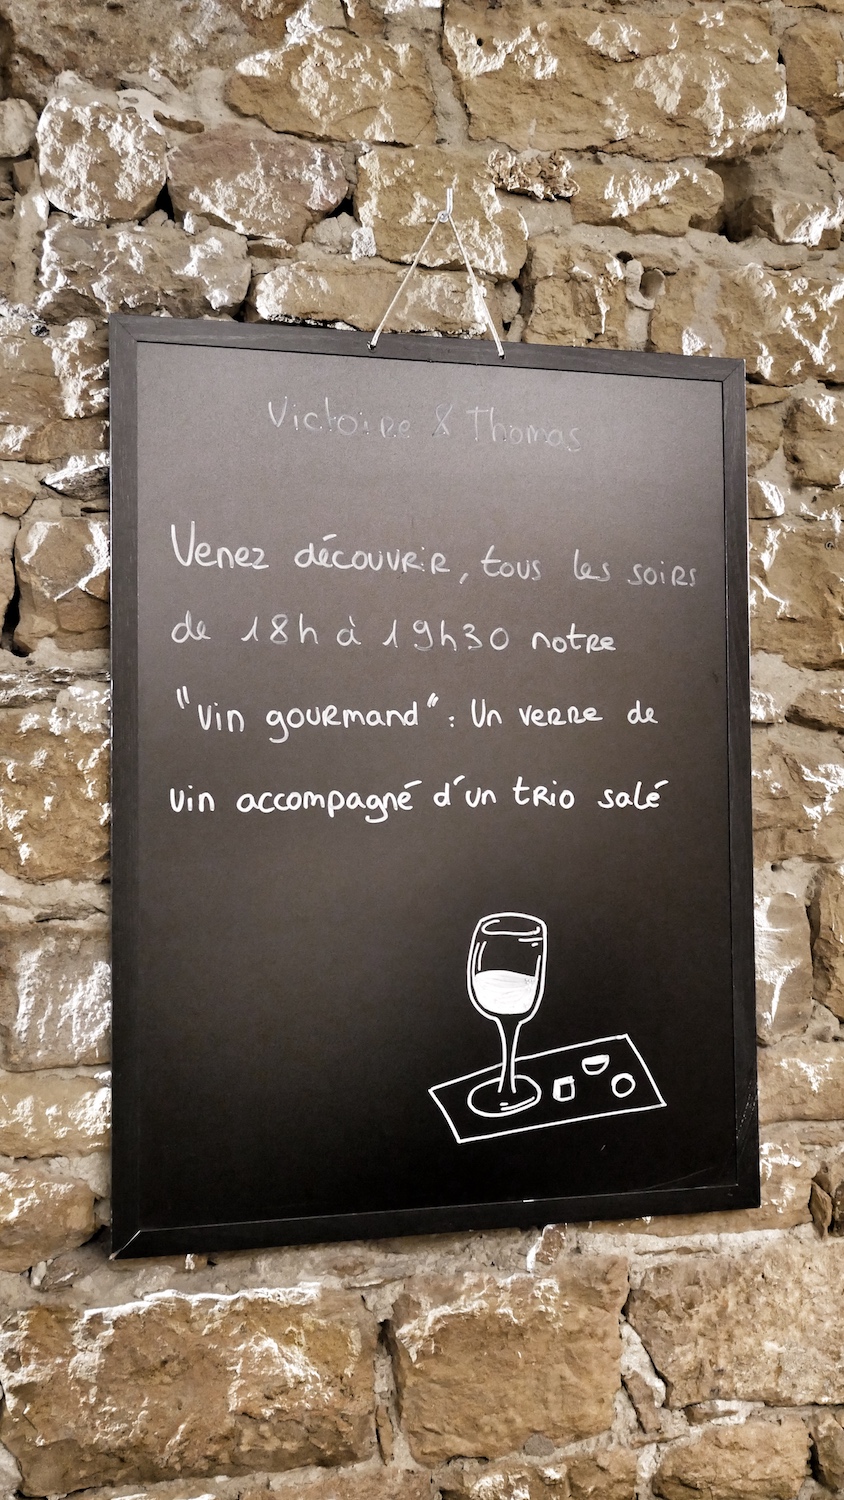 Victoire & Thomas
Venez découvrir, tous les soirs
de 18h à 19h30 notre
"vin gourmand": Un verre de
vin accompagné d'un trio salé